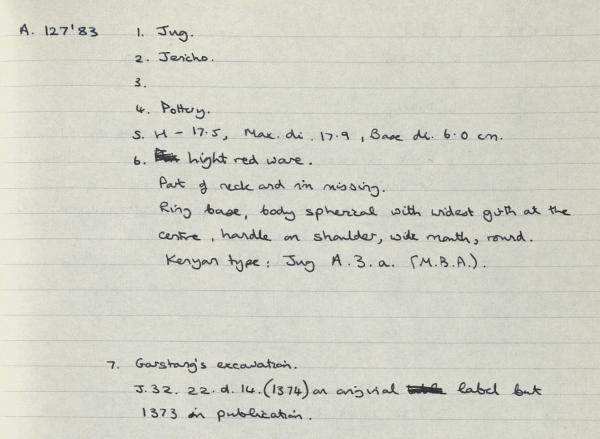 A. 127'83 1. Jug.
2. Jericho.
3.
4. Pottery.
5. H - 17.5, Max. di. 17.9, Base di. 6.0 cm.
6. Light red ware.
Part of neck and rim missing.
Ring base, body spherical with widest girth at the
centre, handle on shoulder, wide mouth, round.
Kenyon type: Jug A.3.a. (M.B.A.).
7. Garstang's excavation.
J.32. 22. d. 14. (1374) on original label but
1373 in publication.